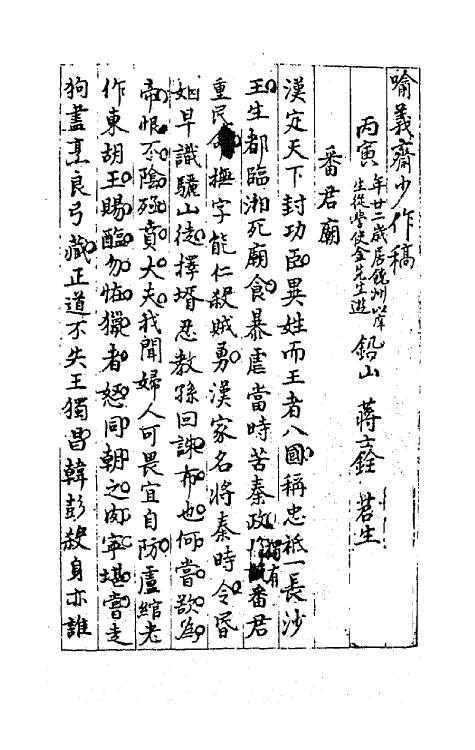 喻義齋少作稿
丙寅 年廿二歲居饒州以庠生從學使金先生遊 鉛山 蔣士銓 君生
番君廟
漢定天下封功臣異姓而王者八國稱忠祗一長沙
王生都臨湘死廟食暴虐當時苦秦政獨有番君
重民命撫字能仁殺賊勇漢家名將秦時令
早識驪山徒擇壻忍教孫回誅布也何嘗欲為
帝恨不陰殛賁大夫我聞婦人可畏宜自防盧綰老
作東胡王賜醢勿怖獵者怒同朝之肉寧堪嘗走
狗盡烹良弓藏正道不失王獨昌韓彭殺身亦誰